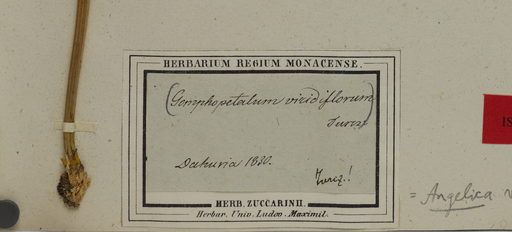 HERBARIUM REGIUM MONACENSE.
(Gomphopetalum viridiflorum)
Turcz
Dahuria 1830.
Turcz.!
HERB. ZUCCARINII.
Herbar. Univ. Ludov. Maximil.
= Angelica